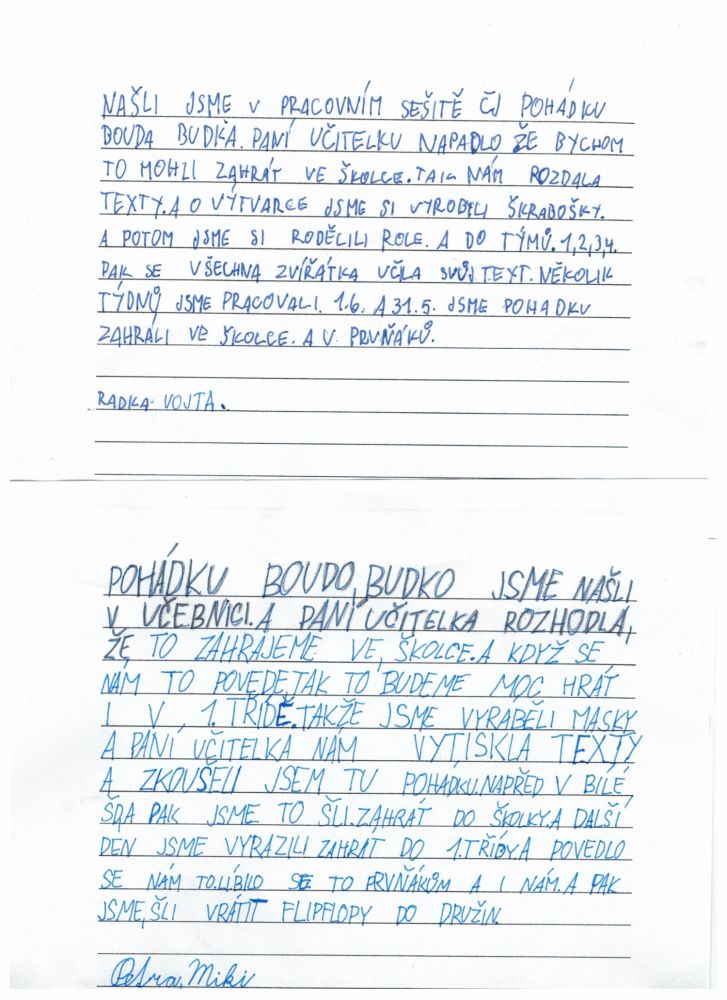 NAŠLI JSME V PRACOVNÍM SEŠITĚ ČJ POHÁDKU
BOUDA BUDKA. PANÍ UČITELKU NAPADLO ŽE BYCHOM
TO MOHLI ZAHRÁT VE ŠKOLCE. TAK NÁM ROZDALA
TEXTY. A O VÝTVARCE JSME SI VYROBILI ŠKRABOŠKY.
A POTOM JSME SI RODĚLILI ROLE. A DO TÝMŮ. 1,2,3,4.
PAK SE VŠECHNA ZVÍŘÁTKA UČILA SVŮJ TEXT. NĚKOLIK
TÝDNŮ JSME PRACOVALI. 1.6. A 31.5. JSME POHADKU
ZAHRÁLI VE ŠKOLCE. A U PRVŇÁKŮ.
RADKA VOJTA.
POHÁDKU BOUDO, BUDKO JSME NAŠLI
V UČEBNICI. A PANÍ UČITELKA ROZHODLA,
ŽE TO ZAHRAJEME VE ŠKOLCE. A KDYŽ SE
NÁM TO POVEDE, TAK TO BUDEME MOC HRÁT
I V 1. TŘÍDĚ. TAKŽE JSME VYRÁBĚLI MASKY
A PANÍ UČITELKA NÁM VYTISKLA TEXTY
A ZKOUŠELI JSEM TU POHÁDKU. NAPŘED V BÍLÉ
ŠDA PAK JSME TO ŠLI ZAHRÁT DO ŠKOLKY. A DALŠÍ
DEN JSME VYRAZILI ZAHRÁT DO 1. TŘÍDY. A POVEDLO
SE NÁM TO. LÍBILO SE TO PRVŇÁKŮM A I NÁM. A PAK
JSME, ŠLI VRÁTIT FLIPFLOPY DO DRUŽIN.
Petra, Miki